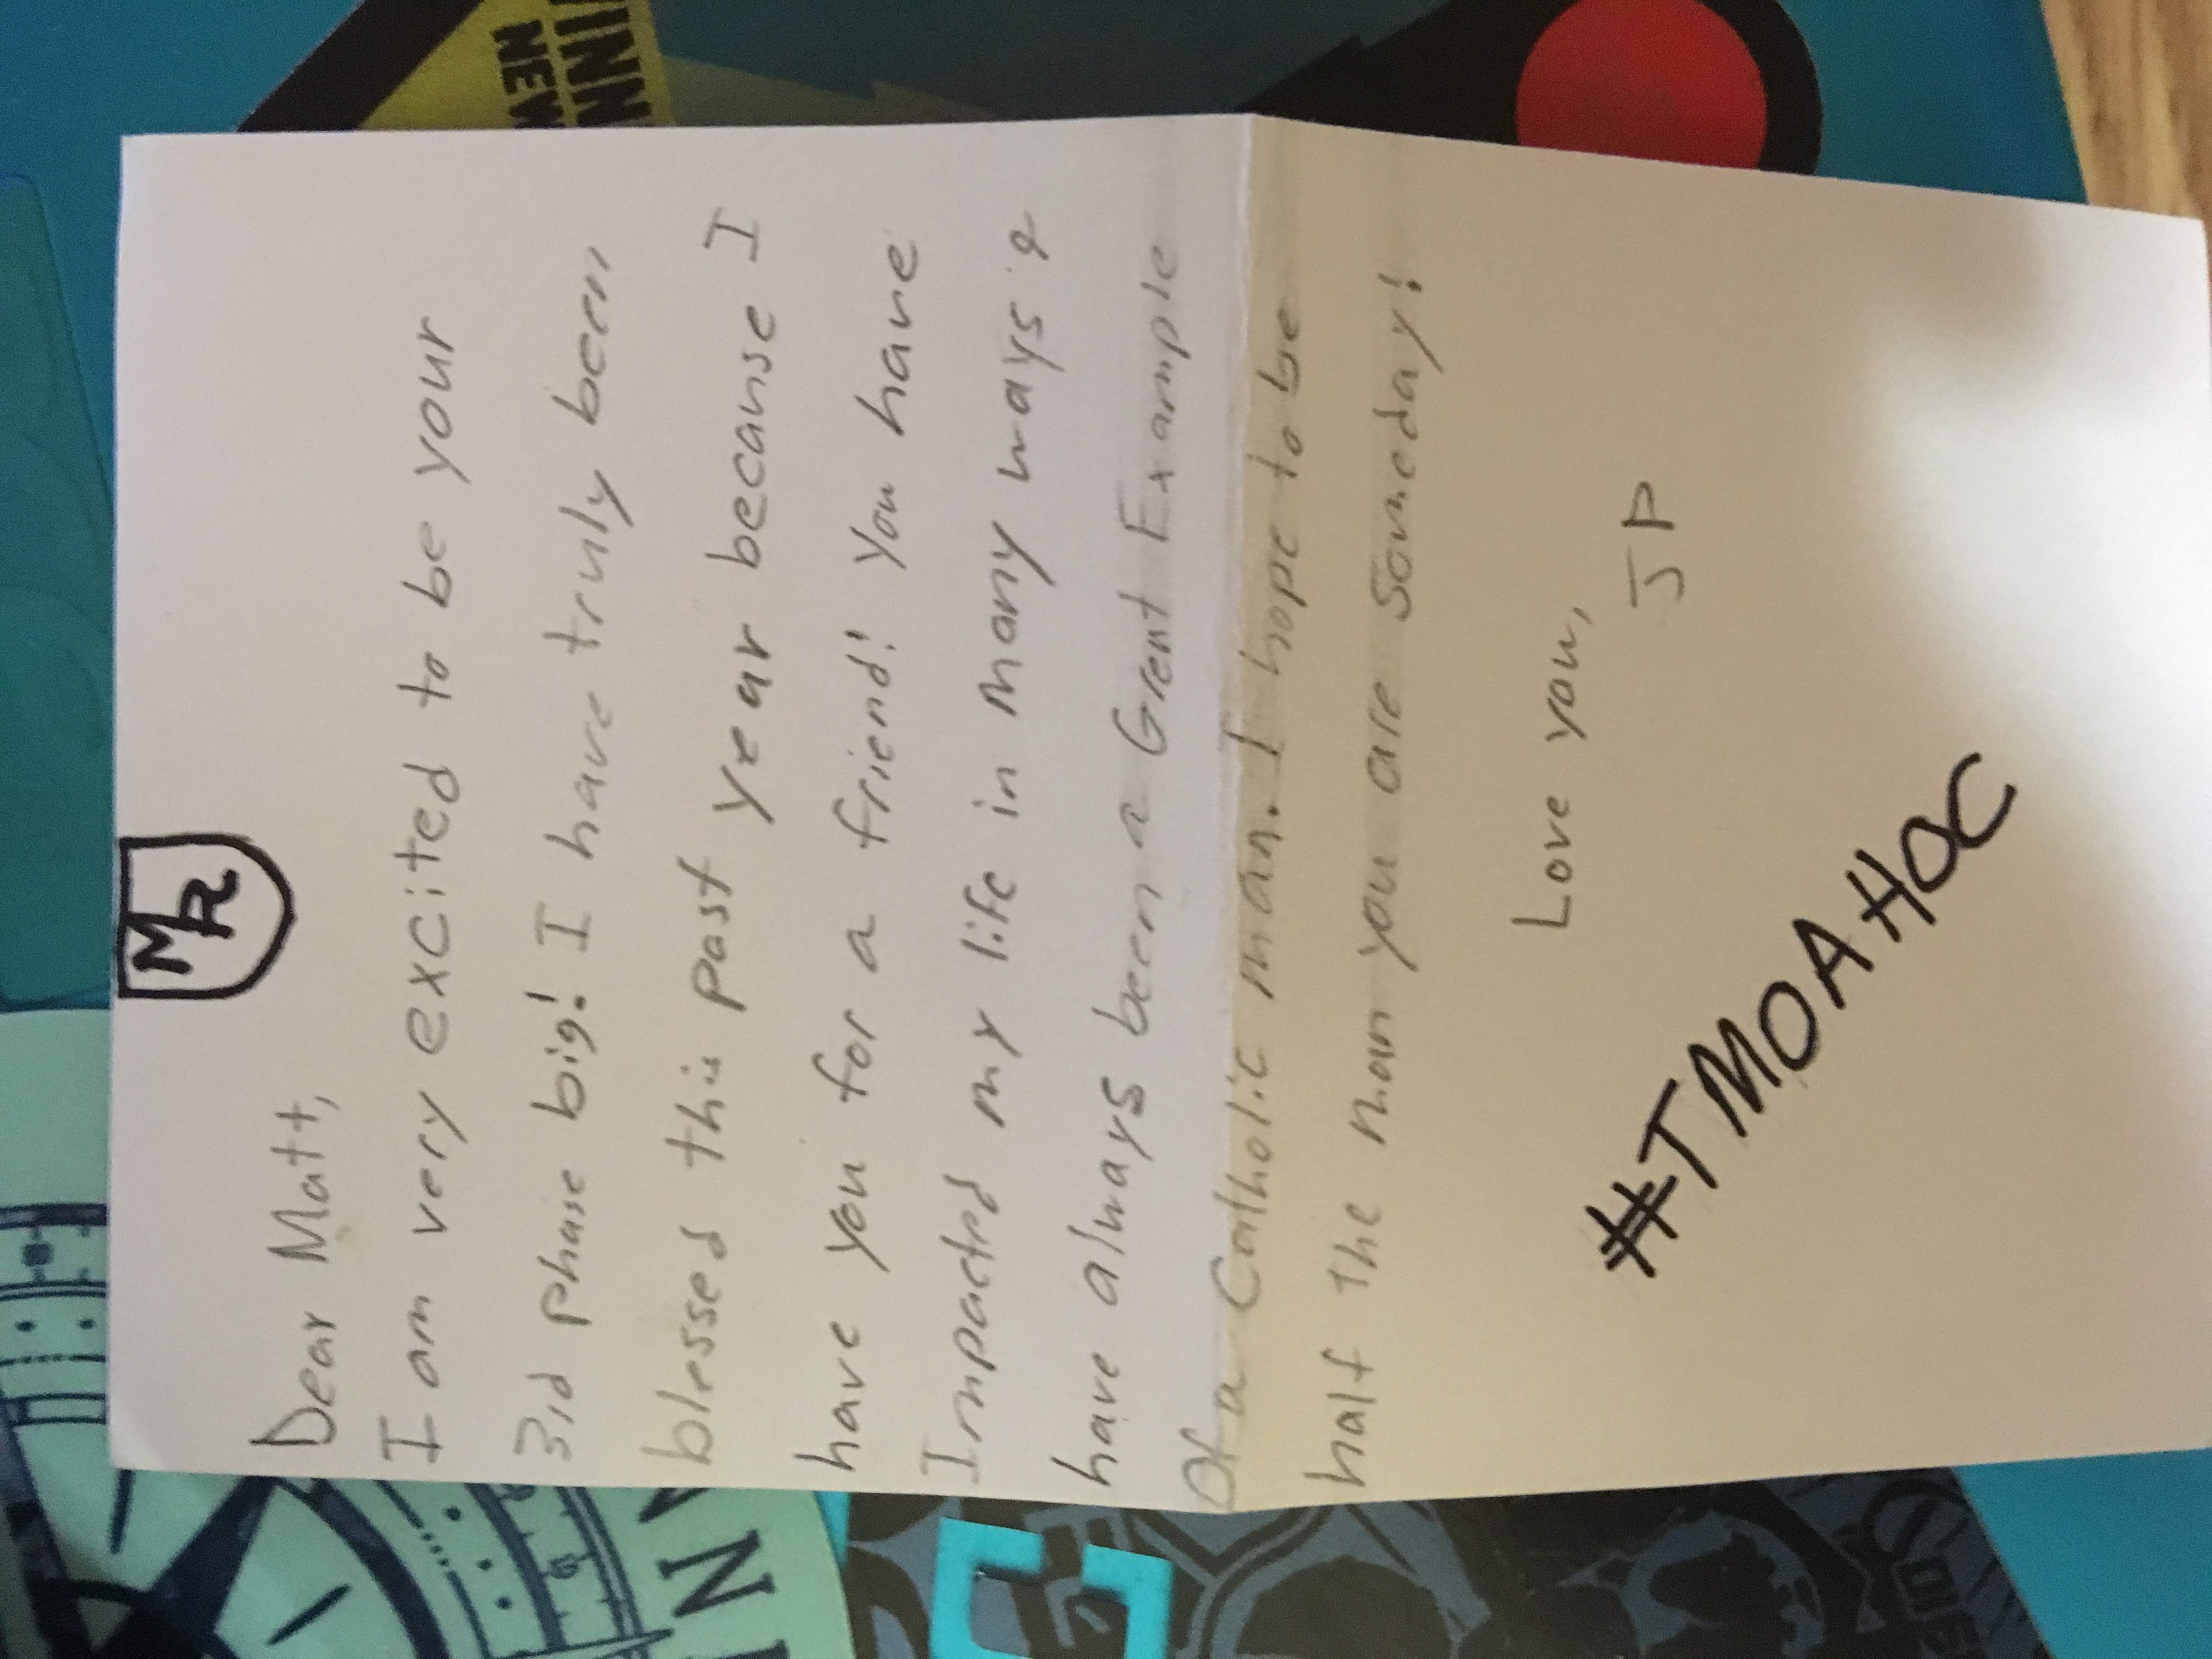 MR
Dear Matt,
I am very excited to be your
3rd phase big! I have truly been
blessed this past year because I
have you for a friend! You have
Impacted my life in many ways &
have always been a Great Example
Of a Catholic man. I hope to be
half the man you are Someday!
Love you,
JP
#TMOAHOC
INN
NEW
N